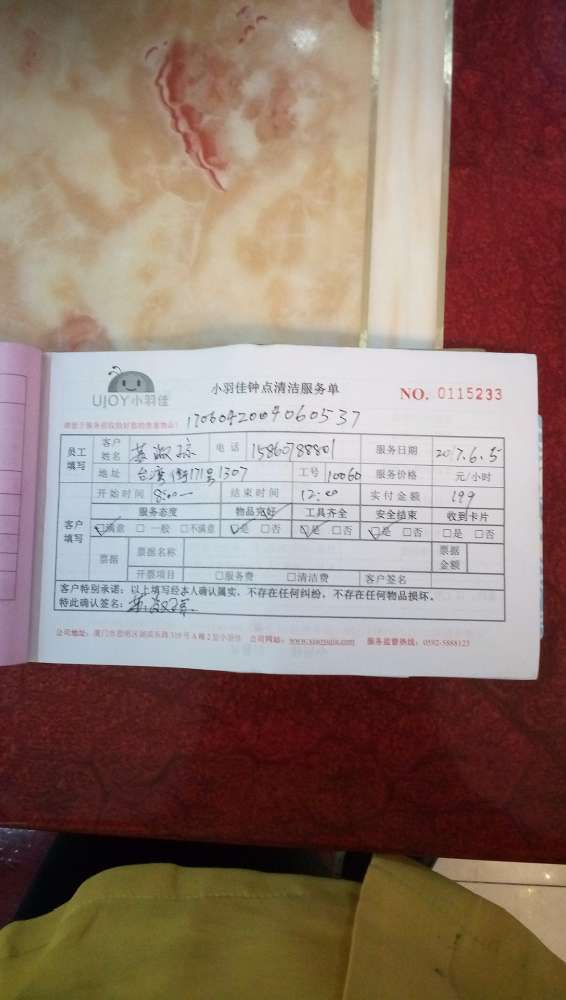 UJOY小羽佳
小羽佳钟点清洁服务单
NO. 0115233
1706042009060537
员工填写 客户姓名 电话 15860788801 服务日期 2017.6.5
地址 台湾街171号1307 工号 10060 服务价格 元/小时
开始时间 8:00 结束时间 12:00 实付金额 199
客户填写 服务态度 物品完好 工具齐全 安全结束 收到卡片
☑满意 □一般 □不满意 ☑是 □否 ☑是 □否 ☑是 □否 □是 □否
票据 票据名称 票据金额
开票项目 □服务费 □清洁费 客户签名
客户特别承诺：以上填写经本人确认属实，不存在任何纠纷，不存在任何物品损坏。
特此确认签名：
公司地址：厦门市思明区 319号A幢2层小羽佳 公司网站： 服务监督热线：0592-5888123